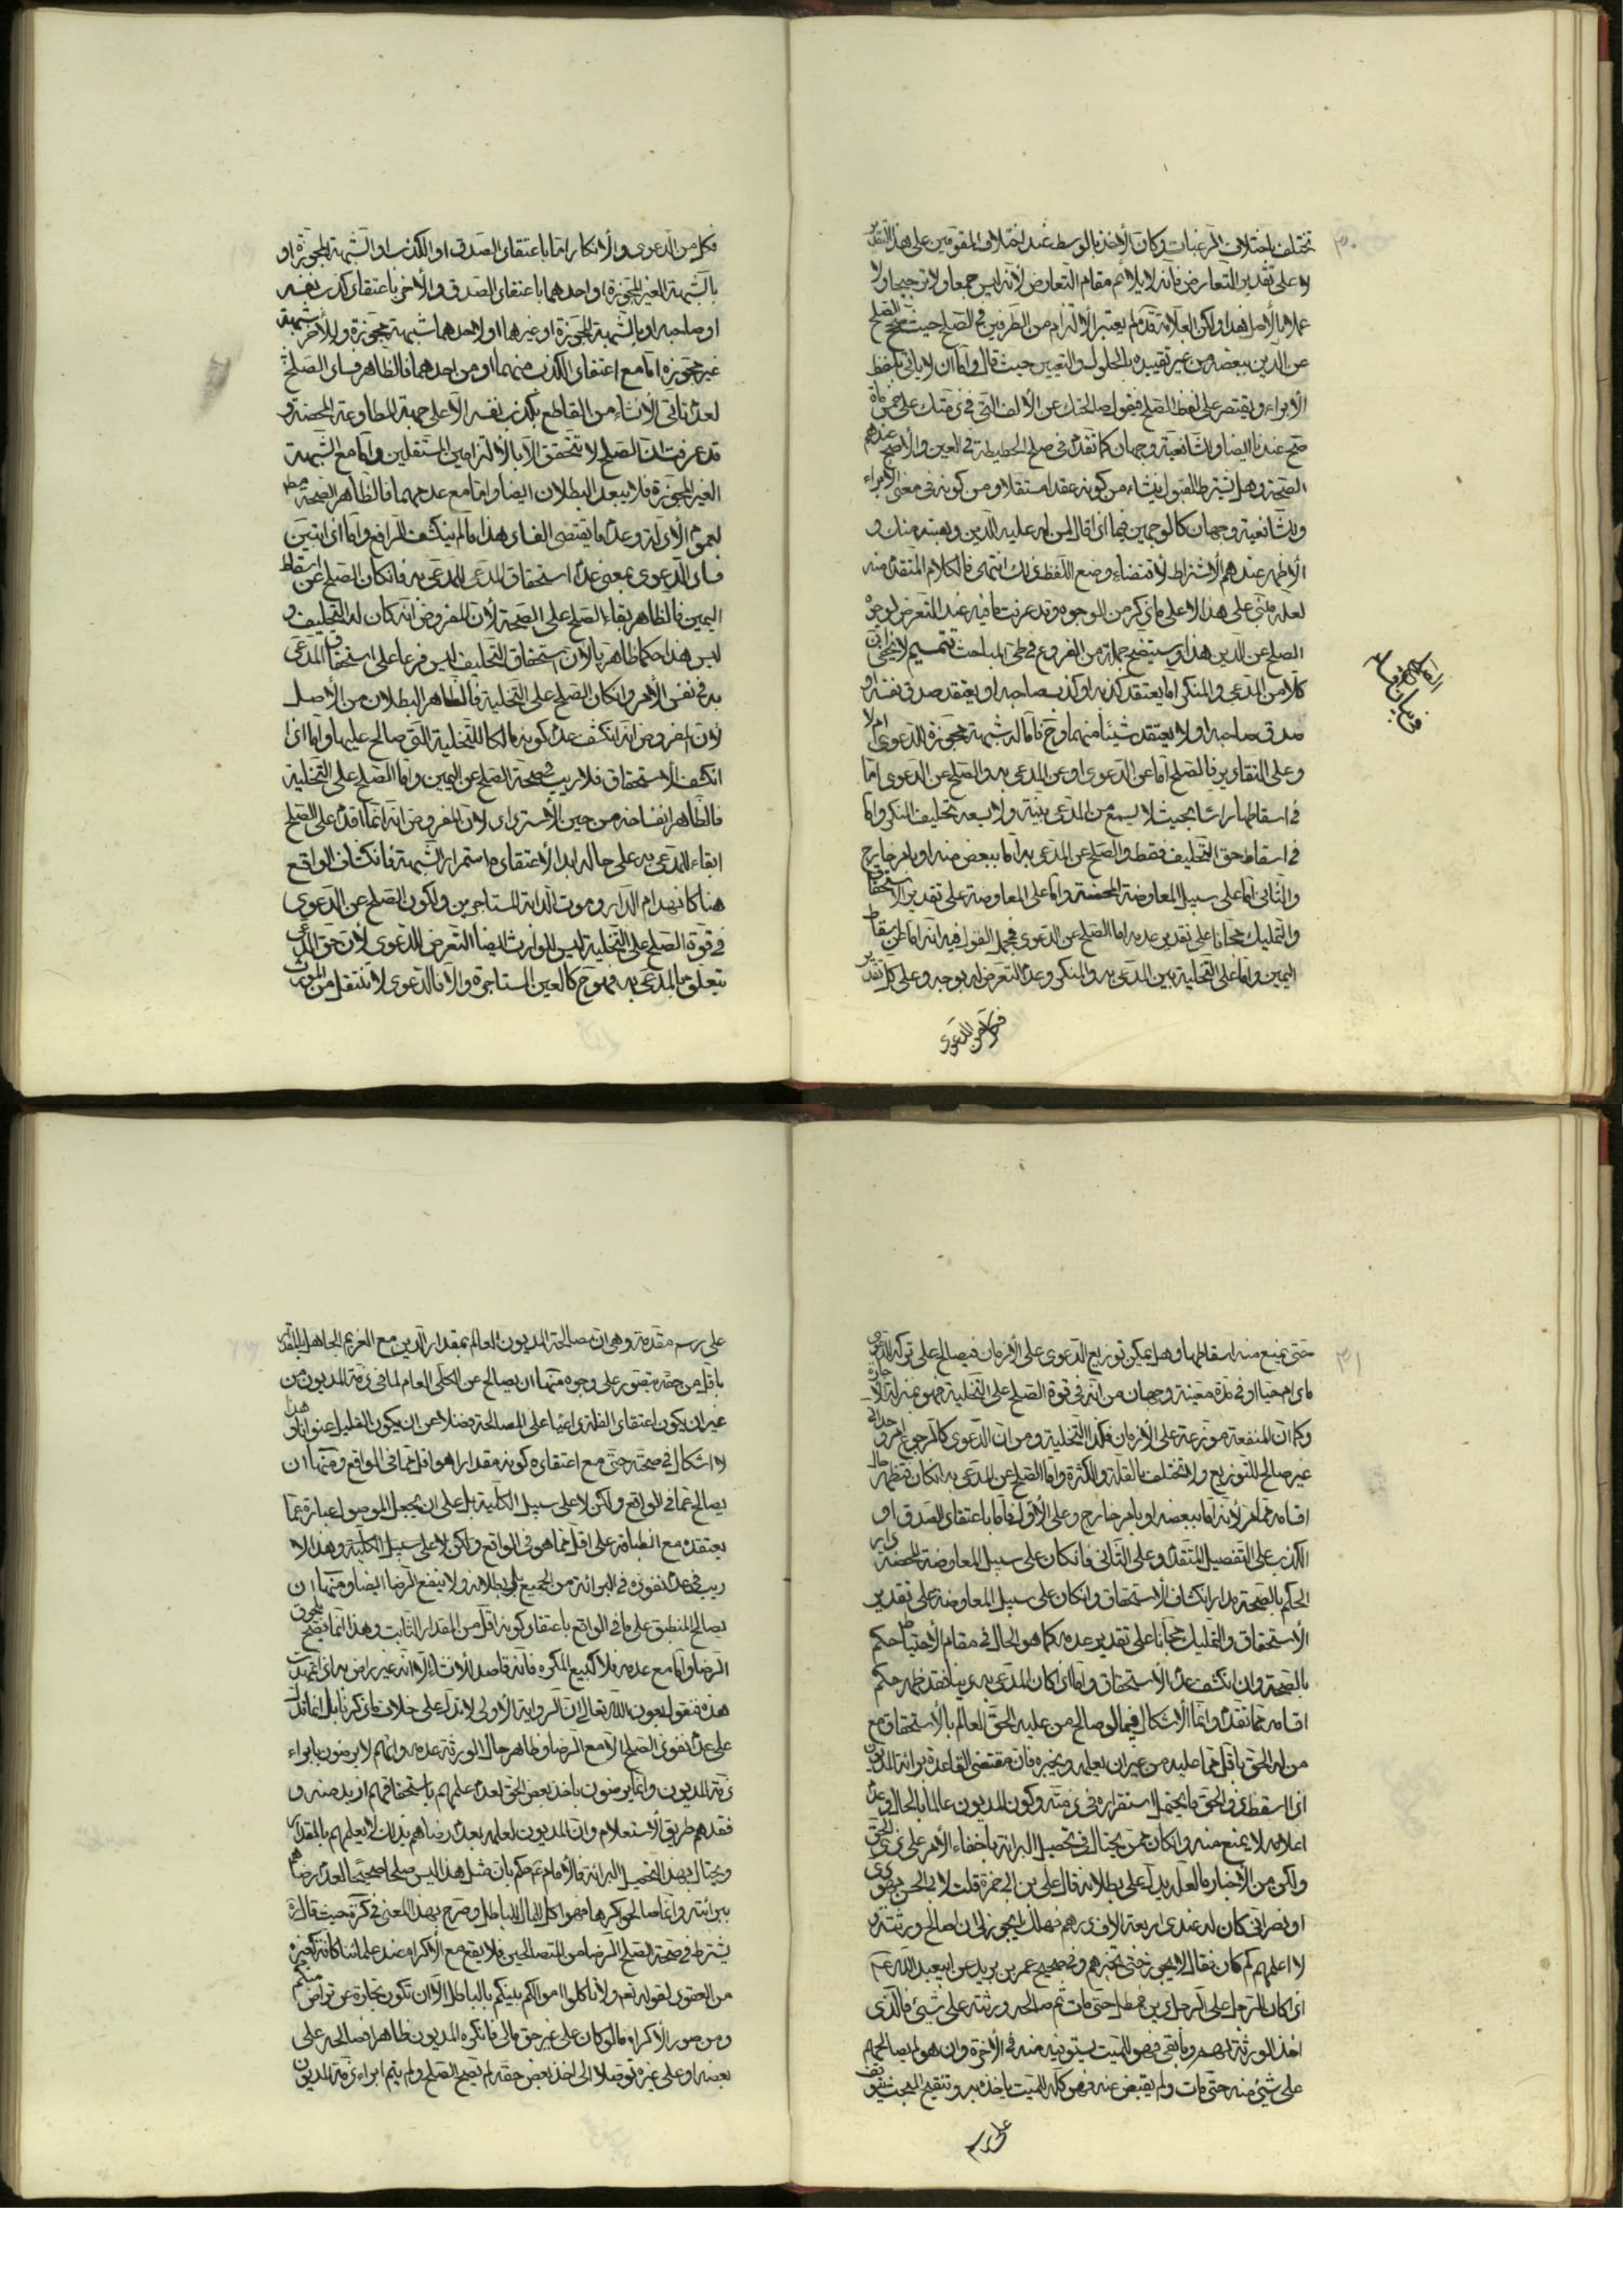 تختلف باختلاف الرغبات وكان الاخذ بالوسط عند اختلاف المقومين على هذا التقدير
لا على تقدير التعارض فانه لا يلائم مقام التعارض لانه ليس جمعا ولا ترجيحا ولا
عملا بالاصل هذا ولكن العلامة قده لم يعتبر الالتزام من الطرفين في الصلح حيث صحح الصلح
عن الدين ببعضه من غير تقييده بالحلول والتعيين حيث قال واما ان لا ياتي بلفظ
الابراء ويقتصر على لفظ الصلح فيقول صالحتك عن الالف التي في ذمتك على خمسمائة
صح عندنا ايضا وللشافعية وجهان كما تقدم في صلح الحطيطة في العين والاصح عندهم
الصحة وهل يشترط القبول ينشاء من كونه عقدا مستقلا ومن كونه في معنى الابراء
وللشافعية وجهان كالوجهين فيما اذا قال لمن له عليه الدين وهبته منك و
الاظهر عندهم الاشتراط لاقتضاء وضع اللفظ ذلك انتهى فالكلام المتقدم منه
لعله مبني على هذا لا على ما ذكر من الوجوه وقد عرفت ما فيه عند التعرض لوجوه
الصلح عن الدين هذا وسيتضح جملة من الفروع في طي المباحث تتميم لا يخفى ان
كلا من المدعي والمنكر اما يعتقد كذبه او كذب صاحبه او يعتقد صدق نفسه او
صدق صاحبه او لا يعتقد شيئا منهما وح فاما له شبهة مجوزة للدعوى ام لا
وعلى التقادير فالصلح اما عن الدعوى او عن المدعى به والصلح عن الدعوى اما
في اسقاطها راسا بحيث لا يسمع من المدعي بينة ولا يسعه تحليف المنكر واما
في اسقاط حق التحليف فقط والصلح عن المدعى به اما ببعض منه او بامر خارج
والثاني اما على سبيل المعاوضة المحضة واما على المعاوضة على تقدير الاستحقاق
والتمليك مجانا على تقدير عدمه اما الصلح عن الدعوى فمجمل القول فيه انه اما على اسقاط
اليمين واما على التخلية بين المدعى به والمنكر وعدم التعرض له بوجه وعلى كل تقدير
فكل من الدعوى
فكل من الدعوى والانكار اما باعتقاد الصدق او الكذب او الشبهة المجوزة او
بالشبهة الغير المجوزة او احدهما باعتقاد الصدق والاخر باعتقاد كذب نفسه
او صاحبه او بالشبهة المجوزة او غيرها او لاحدهما شبهة مجوزة وللاخر شبهة
غير مجوزة اما مع اعتقاد الكذب منهما او من احدهما فالظاهر فساد الصلح
لعدم تاتي الانشاء من القاطع بكذب نفسه الا على جهة المطاوعة المحضة و
قد عرفت ان الصلح لا يتحقق الا بالالتزامين المستقلين واما مع الشبهة
الغير المجوزة فلا يبعد البطلان ايضا واما مع عدمهما فالظاهر الصحة مط
لعموم الادلة وعدم ما يقتضي الفساد هذا ما لم ينكشف الرافع واما اذا تبين
فساد الدعوى بمعنى عدم استحقاق المدعي للمدعى به فان كان الصلح عن اسقاط
اليمين فالظاهر بقاء الصلح على الصحة لان المفروض انه كان له التحليف و
ليس هذا حكما ظاهريا لان استحقاق التحليف ليس فرعا على استحقاق المدعي
به في نفس الامر وان كان الصلح على التخلية فالظاهر البطلان من الاصل
لان المفروض انه انكشف عدم كونه مالكا للتخلية التي صالح عليها واما اذا
انكشف الاستحقاق فلا ريب في صحة الصلح عن اليمين واما الصلح على التخلية
فالظاهر انفساخه من حين الاسترداد لان المفروض انه انما اقدم على الصلح
ابقاء المدعى به على حاله ابدا لاعتقاده استمرار الشبهة فانكشاف الواقع
هنا كانهدام الدار وموت الدابة المستاجرين ولكون الصلح عن الدعوى
في قوة الصلح على التخلية ليس للوارث ايضا التعرض للدعوى لان حق المدعي
يتعلق بالمدعى به فهو ح كالعين المستاجرة والا فالدعوى لا تنتقل من المورث
حتى يمنع منه اسقاطها وهل يمكن توزيع الدعوى على الازمان فيصالح على ترك الدعوى
مادام حيا او في مدة معينة وجهان من انه في قوة الصلح على التخلية فهو بمنزلة الاجارة
وكما ان المنفعة موزعة على الازمان فكذا التخلية ومن ان الدعوى كالرجوع امر وحداني
غير صالح للتوزيع ولا تختلف بالقلة والكثرة واما الصلح عن المدعى به فان كان فيظهر حال
اقسامه مما مر لانه اما ببعضه او بامر خارج وعلى الاول فاما باعتقاد الصدق او
الكذب على التفصيل المتقدم وعلى الثاني فان كان على سبيل المعاوضة المحضة دار
الحكم بالصحة مدار انكشاف الاستحقاق وان كان على سبيل المعاوضة على تقدير
الاستحقاق والتمليك مجانا على تقدير عدمه كما هو الحال في مقام الاحتياط حكم
بالصحة وان انكشف عدم الاستحقاق واما اذا كان المدعى به دينا فقد ظهر حكم
اقسامه مما تقدم وانما الاشكال فيما لو صالح من عليه الحق العالم بالاستحقاق مع
من له الحق باقل مما عليه من غير ان يعلمه ويخبره فان مقتضى القاعدة برائة المديون
اذا اسقط ذو الحق ما يحتمل استقراره في ذمته وكون المديون عالما بالحال وعدم
اعلامه لا يمنع منه وان كان ممن يحتال في تحصيل البرائة باخفاء الامر على ذي الحق
ولكن من الاخبار ما لعله يدل على بطلانه قال علي بن ابي حمزة قلت لابي الحسن يهودي
او نصراني كان له عندي اربعة الاف درهم فهلك ايجوز لي ان اصالح ورثته و
لا اعلمهم كم كان فقال لا يجوز حتى تخبرهم وفي صحيح عمر بن يزيد عن ابيعبد الله ع
اذا كان للرجل على الرجل دين فمطل حتى مات ثم صالح ورثته على شيئ فالذي
اخذ الورثة لهم وما بقي فهو للميت يستوفيه منه في الاخرة وان هو لم يصالحهم
على شيئ منه حتى مات ولم يقبض عنه فهو كله للميت ياخذه به وتنقيح المبحث يتوقف
على رسم
على رسم مقدمة وهي ان مصالحة المديون العالم بمقدار الدين مع الغريم الجاهل بالمقدار
باقل من حقه متصور على وجوه منها ان يصالح عن الكلي العام لما في ذمة المديون من
غير ان يكون اعتقاد القلة داعيا على المصالحة فضلا عن ان يكون القليل عنوانا وهذا
لا اشكال في صحته حتى مع اعتقاده كونه مقدارا هو اقل مما في الواقع ومنها ان
يصالح عما في الواقع ولكن لا على سبيل الكلية بل على ان يجعل الموصول عبارة عما
يعتقده مع انطباقه على اقل مما هو في الواقع ولكن لا على سبيل الكلية وهذا لا
ريب في عدم نفوذه في البرائة من الجميع بل بطلانه ولا ينفع الرضا ايضا ومنها ان
يصالح المنطبق على ما في الواقع باعتقاد كونه اقل من المقدار الثابت وهذا انما يصح بلحوق
الرضا واما مع عدمه فلا كبيع المكره فانه قاصد للانشاء الا انه غير راض به اذا تمهدت
هذه فنقول بعون الله تعالى ان الرواية الاولى لا تدل على خلاف ما ذكرنا بل انما تدل
على عدم نفوذ الصلح الا مع الرضا وظاهر حال الورثة عدمه وانهم لا يرضون بابراء
ذمة المديون وانما يرضون باخذ بعض الحق لعدم علمهم باستحقاقهم ازيد منه و
فقدهم طريق الاستعلام وان المديون لعلمه بعدم رضاهم بذلك لا يعلمهم بالمقدار
ويحتال بهذا لتحصيل البرائة فالامام ع حكم بان مثل هذا ليس صلحا صحيحا لعدم رضاهم
ببرائته وانما صالحوا كرها فهو اكل المال بالباطل وصرح بهذا المعنى في كره حيث قال ره
يشترط في صحة الصلح الرضا من المتصالحين فلا يقع مع الاكراه عند علمائنا كافة كغيره
من العقود لقوله تعه ولا تاكلوا اموالكم بينكم بالباطل الا ان تكون تجارة عن تراض منكم
ومن صور الاكراه ما لو كان على غيره حق مالي فانكره المديون ظاهرا فصالحه على
بعضه او على غيره توصلا الى اخذ بعض حقه لم يصح الصلح ولم يتم ابراء ذمة المديون